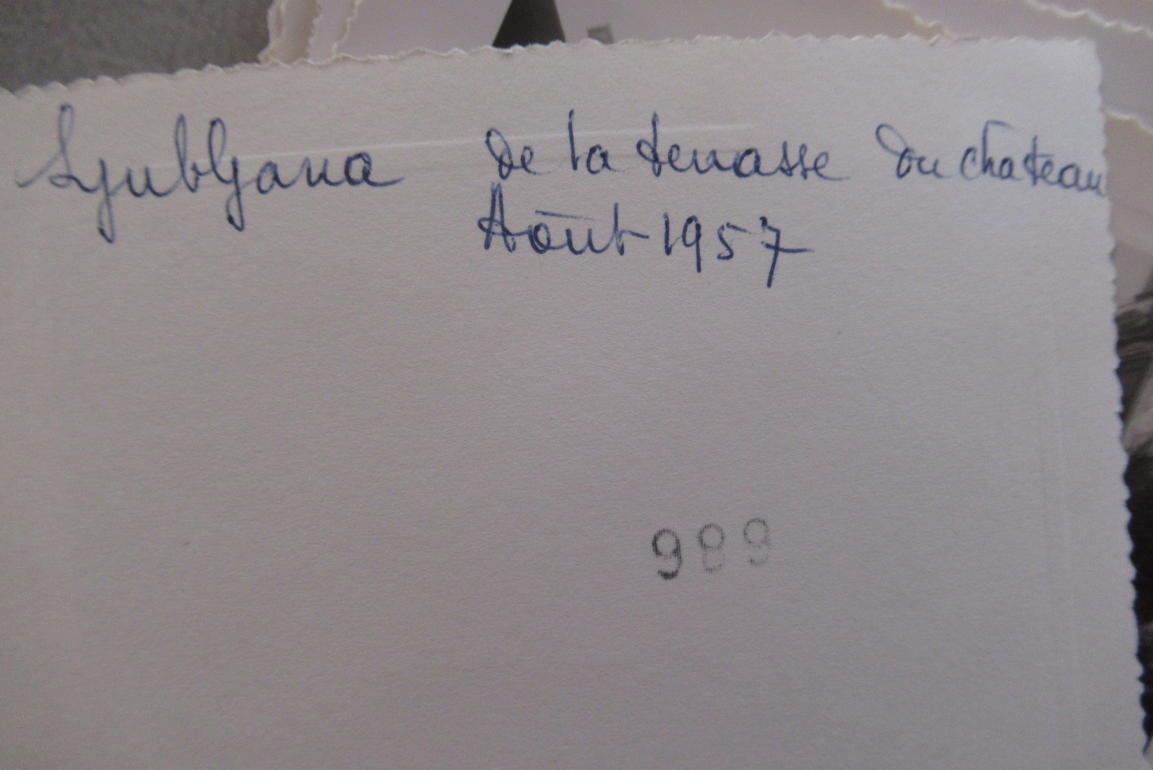 Ljubljana de la terrasse du chateau
Août 1957
989